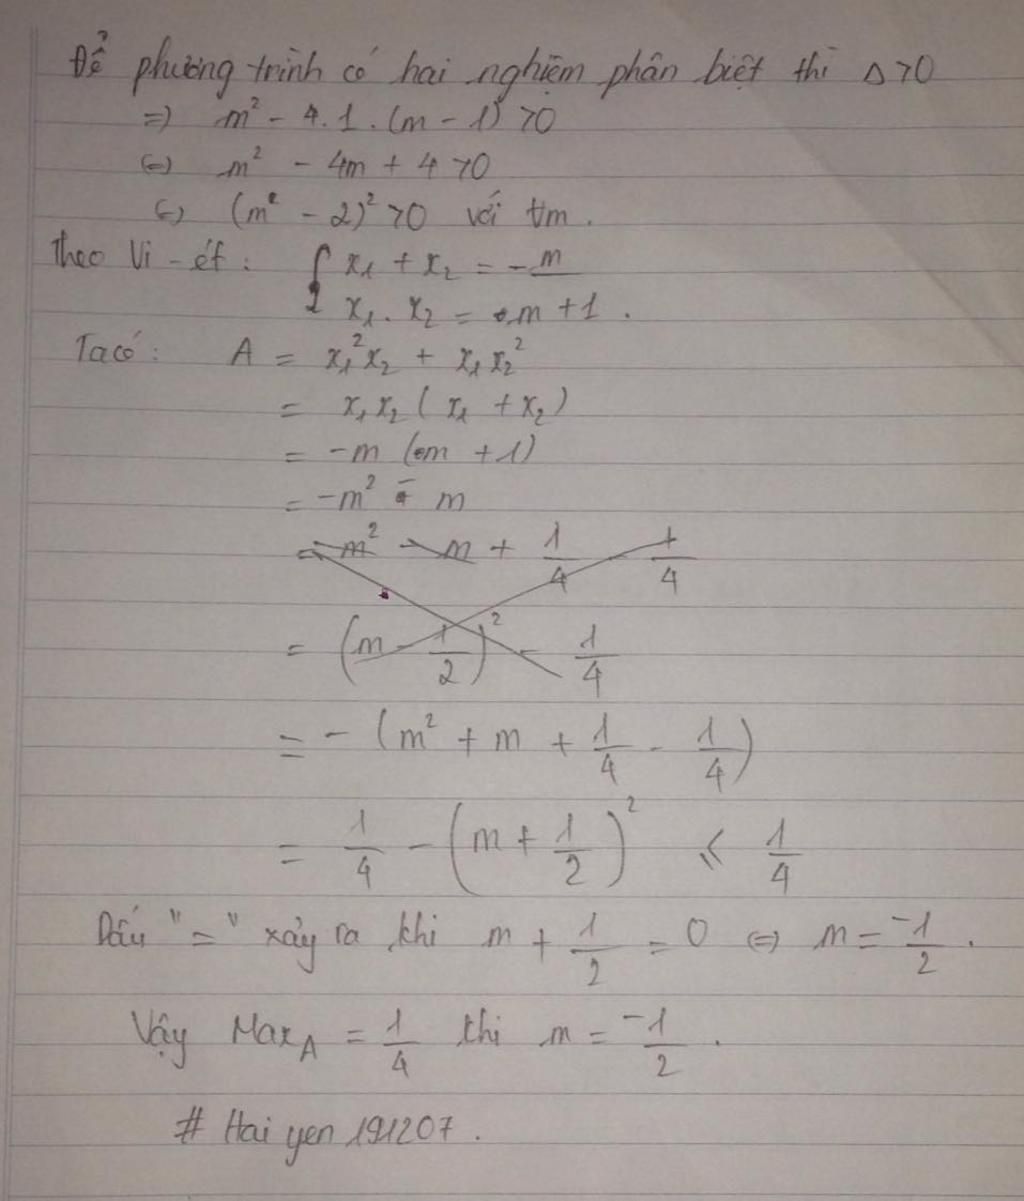 Để phương trình có hai nghiệm phân biệt thì Δ>0
=) m² - 4.1.(m - 1) >0
(=) m² - 4m + 4 >0
(=) (m² - 2)² >0 với ∀m.
Theo Vi-ét: { x₁ + x₂ = -m
x₁. x₂ = m + 1.
Ta có: A = x₁²x₂ + x₁x₂²
= x₁x₂ (x₁ + x₂)
= -m (m + 1)
= -m² - m
= m² - m + 1/4 - 1/4
= (m - 1/2)² - 1/4
= - (m² + m + 1/4 - 1/4)
= 1/4 - (m + 1/2)² ≤ 1/4
Dấu "=" xảy ra khi m + 1/2 = 0 (=) m = -1/2.
Vậy MaxA = 1/4 khi m = -1/2.
# Hai yen 191207.